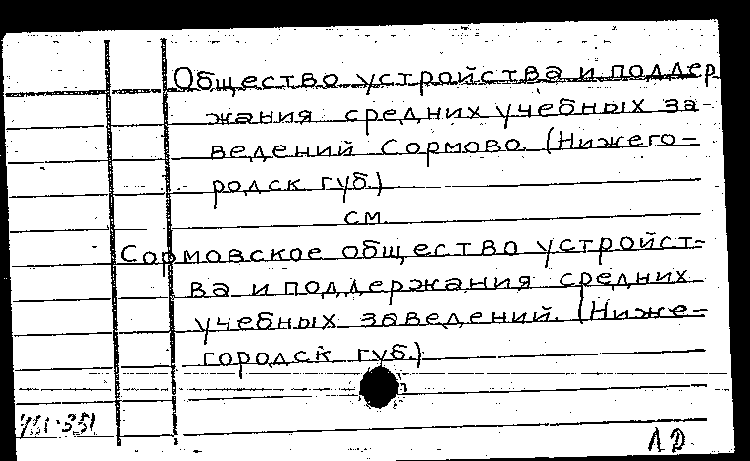 Общество устройства и поддер
жания средних учебных за-
ведений Сормово. (Нижего-
родск губ.)
см.
Сормовское общество устройст-
ва и поддержания средних
учебных заведений. (Ниже-
городск губ.)
461-351
ЛД